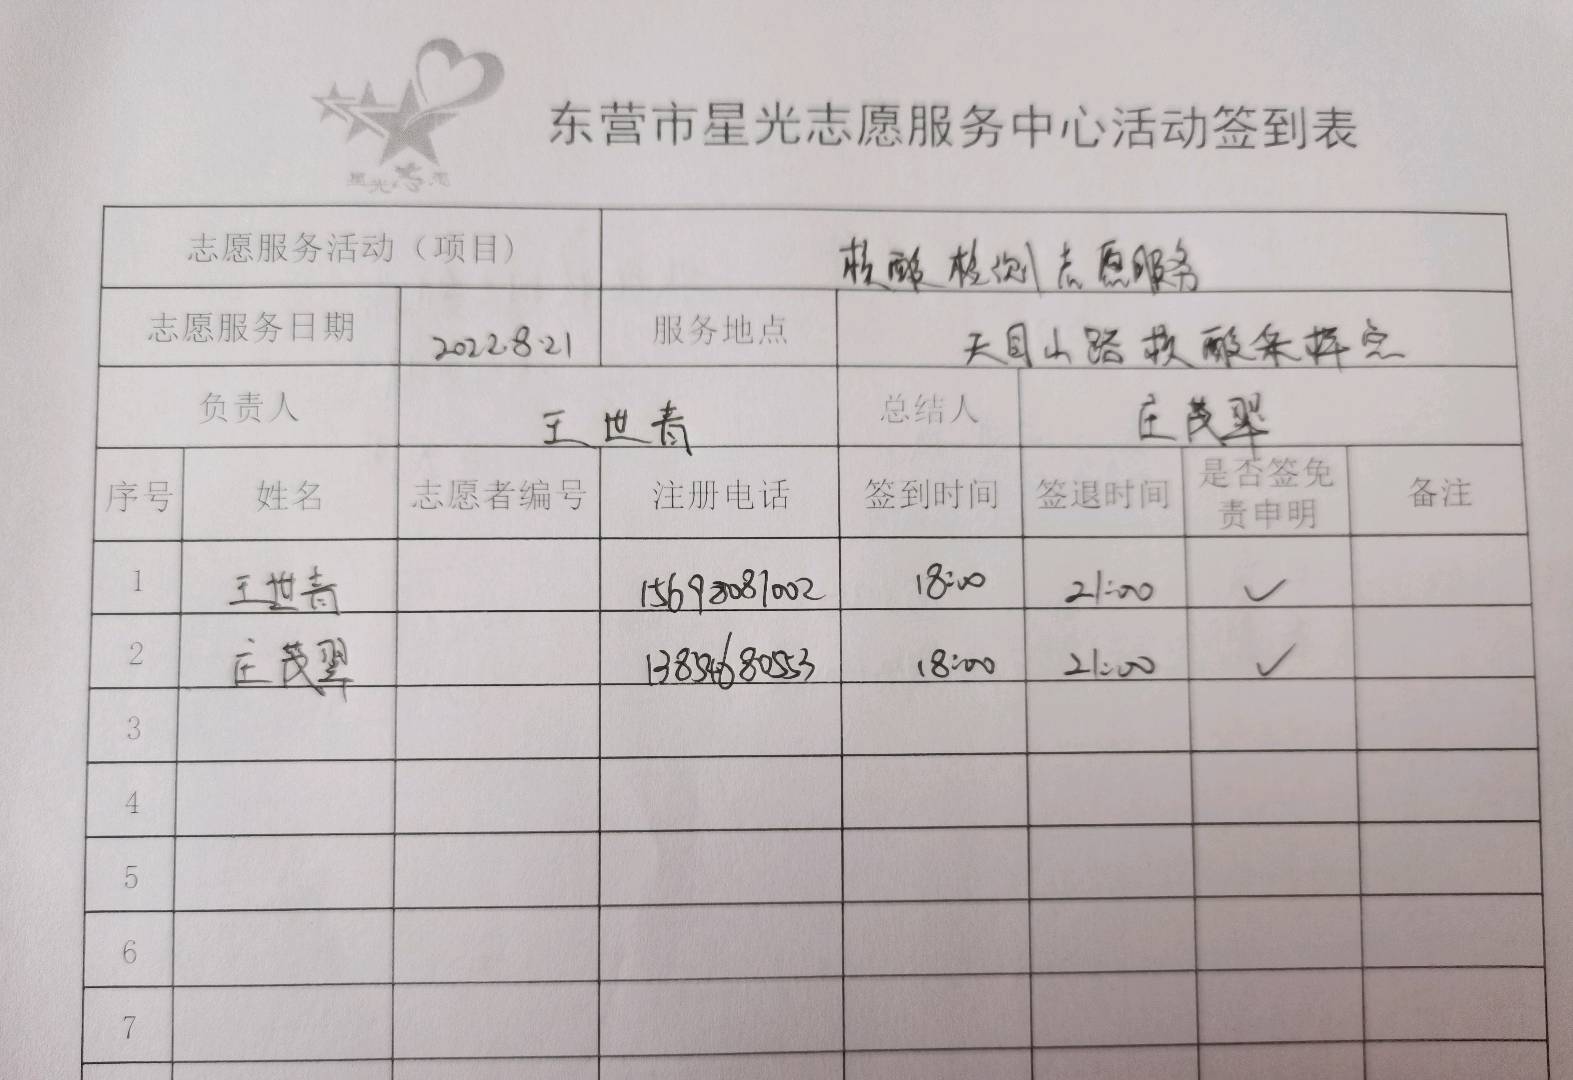 东营市星光志愿服务中心活动签到表
志愿服务活动（项目） 核酸检测志愿服务
志愿服务日期 2022.8.21 服务地点 天目山路核酸采样点
负责人 王世青 总结人 庄茂翠
序号 姓名 志愿者编号 注册电话 签到时间 签退时间 是否签免责申明 备注
1 王世青 18:00 21:00 ✓
2 庄茂翠 13854680553 18:00 21:00 ✓
3
4
5
6
7